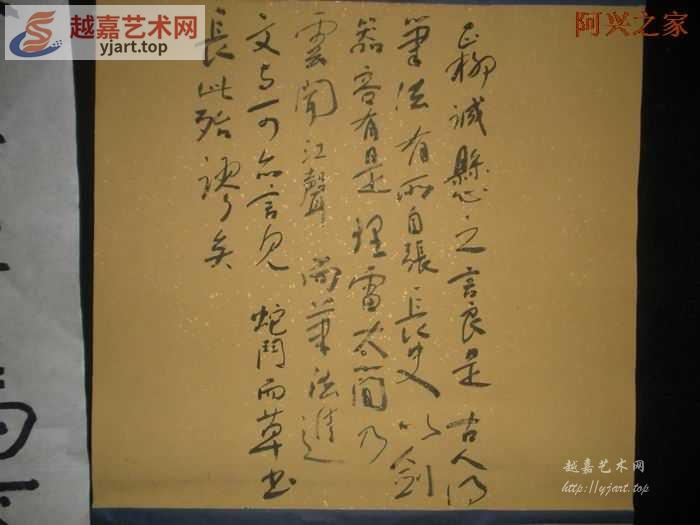 越嘉艺术网
yjart.top
阿兴之家
柳誠懸之言良是古人得
筆法有所自張長史以劍
器容有是理雷太簡乃
雲聞江聲而筆法進
文与可亦言見蛇鬥而草書
長此殆謬矣
越嘉艺术网
http://yjart.top